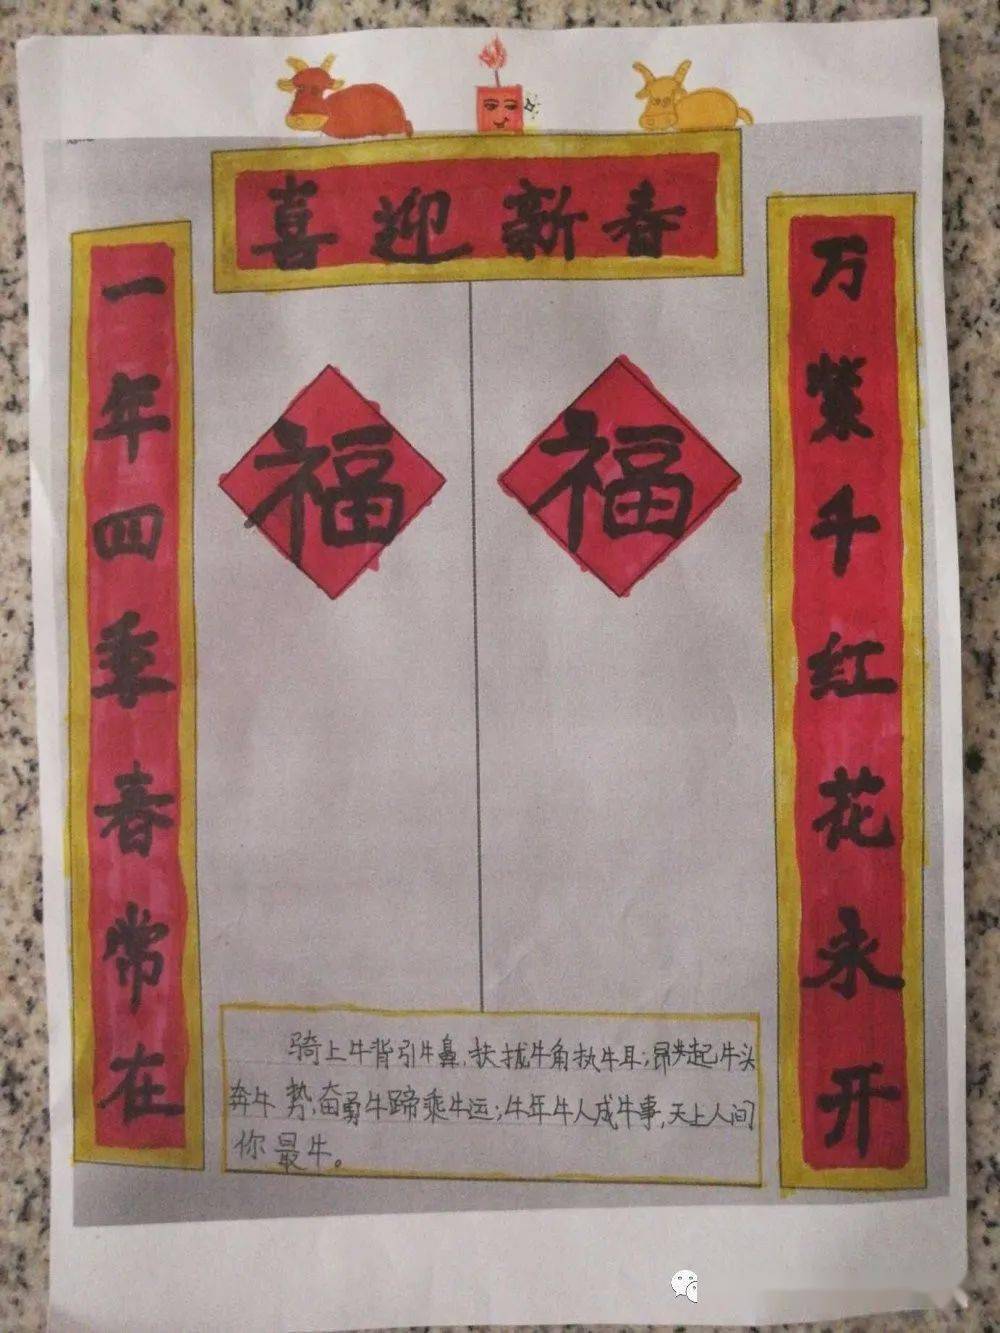 喜迎新春
一年四季春常在
万紫千红花永开
福
福
骑上牛背引牛鼻,扶拢牛角执牛耳;昂起牛头
奔牛势,奋勇牛蹄乘牛运;牛年牛人成牛事,天上人间
你最牛。